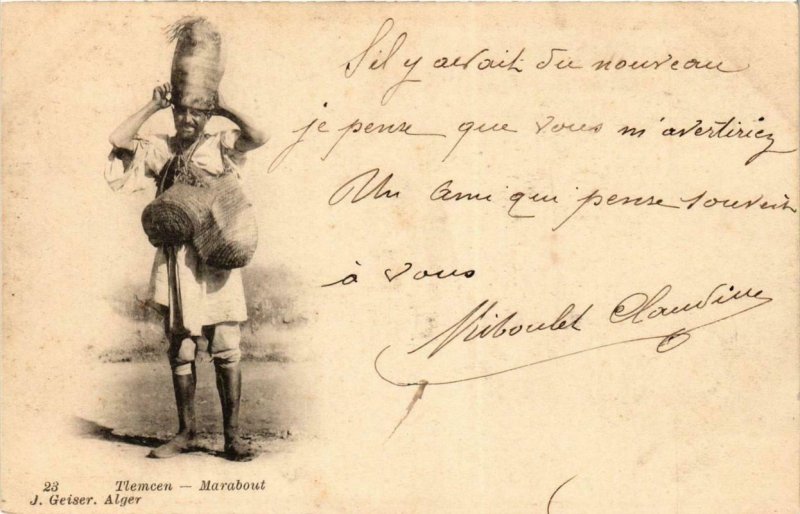 S'il y avait du nouveau
je pense que vous m'avertiriez
Un ami qui pense souvent
à vous
Riboulet Claudine
23 Tlemcen — Marabout
J. Geiser. Alger